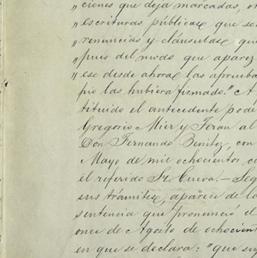 "ciones que deja marcadas, o
"escrituras públicas que se
"renuncias y cláusulas que
"pués del modo que aparez
"ese desde ahora las aprueba
"pio las hubiera firmado." A
tituido el antecedente pode
Gregorio Mier y Terán al
Don Fernando Benitez, con
Mayo de mil ochocientos
el referido Sr. Cueva.—Seg
sus trámites, aparece de lo
sentencia que pronunció el
once de Agosto de ochocient
en que se declara: "que su